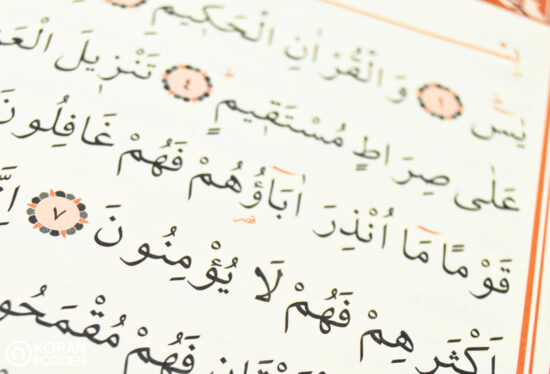 يٰسٓ ١ وَالْقُرْاٰنِ الْحَكٖيمِ
عَلٰى صِرَاطٍ مُسْتَقٖيمٍ ٤ تَنْزٖيلَ
قَوْمًا مَٓا اُنْذِرَ اٰبَٓاؤُ۬هُمْ فَهُمْ غَافِلُونَ
اَكْثَرِهِمْ فَهُمْ لَا يُؤْمِنُونَ ٧
فَهُمْ
KORAN
PODDEN